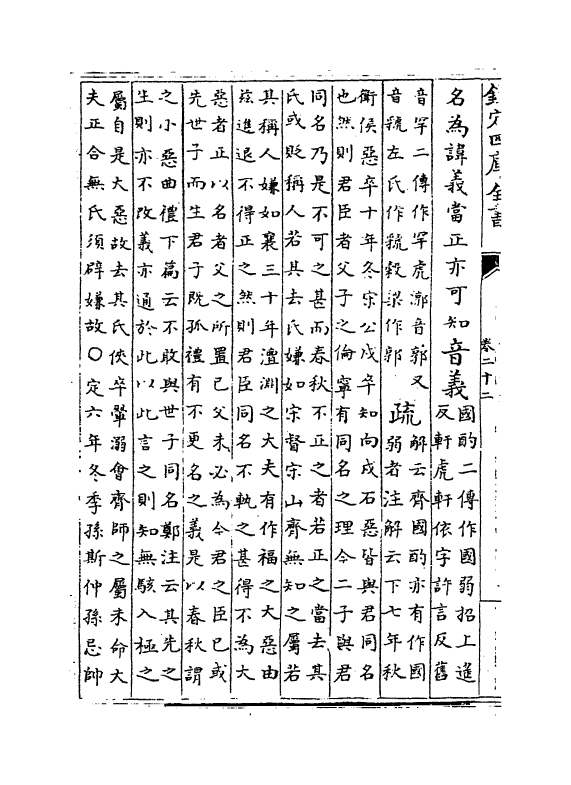 欽定四庫全書
卷二十二
名為諱義當正亦可知音義
國酌二傳作國弱招上遥
反軒虎軒依字許言反舊
音罕二傳作罕虎漷音郭又
音虢左氏作虢榖梁作郭
疏
解云齊國酌亦有作國
弱者注解云下七年秋
衛侯惡卒十年冬宋公戍卒知向戍石惡皆與君同名
也然則君臣者父子之倫寧有同名之理今二子與君
同名乃是不可之甚而春秋不正之者若正之當去其
氏或貶稱人若其去氏嫌如宋督宋山齊無知之屬若
其稱人嫌如襄三十年澶淵之大夫有作福之大惡由
兹進退不得正之然則君臣同名不軌之甚得不為大
惡者正以名者父之所置已父未必為今君之臣已或
先世子而生君子既孤禮有不更名之義是以春秋謂
之小惡曲禮下篇云不敢與世子同名鄭注云其先之
生則亦不改義亦通於此以此言之則知無駭入極之
屬自是大惡故去其氏俠卒翬溺會齊師之屬未命大
夫正合無氏須辟嫌故〇定六年冬季孫斯仲孫忌帥